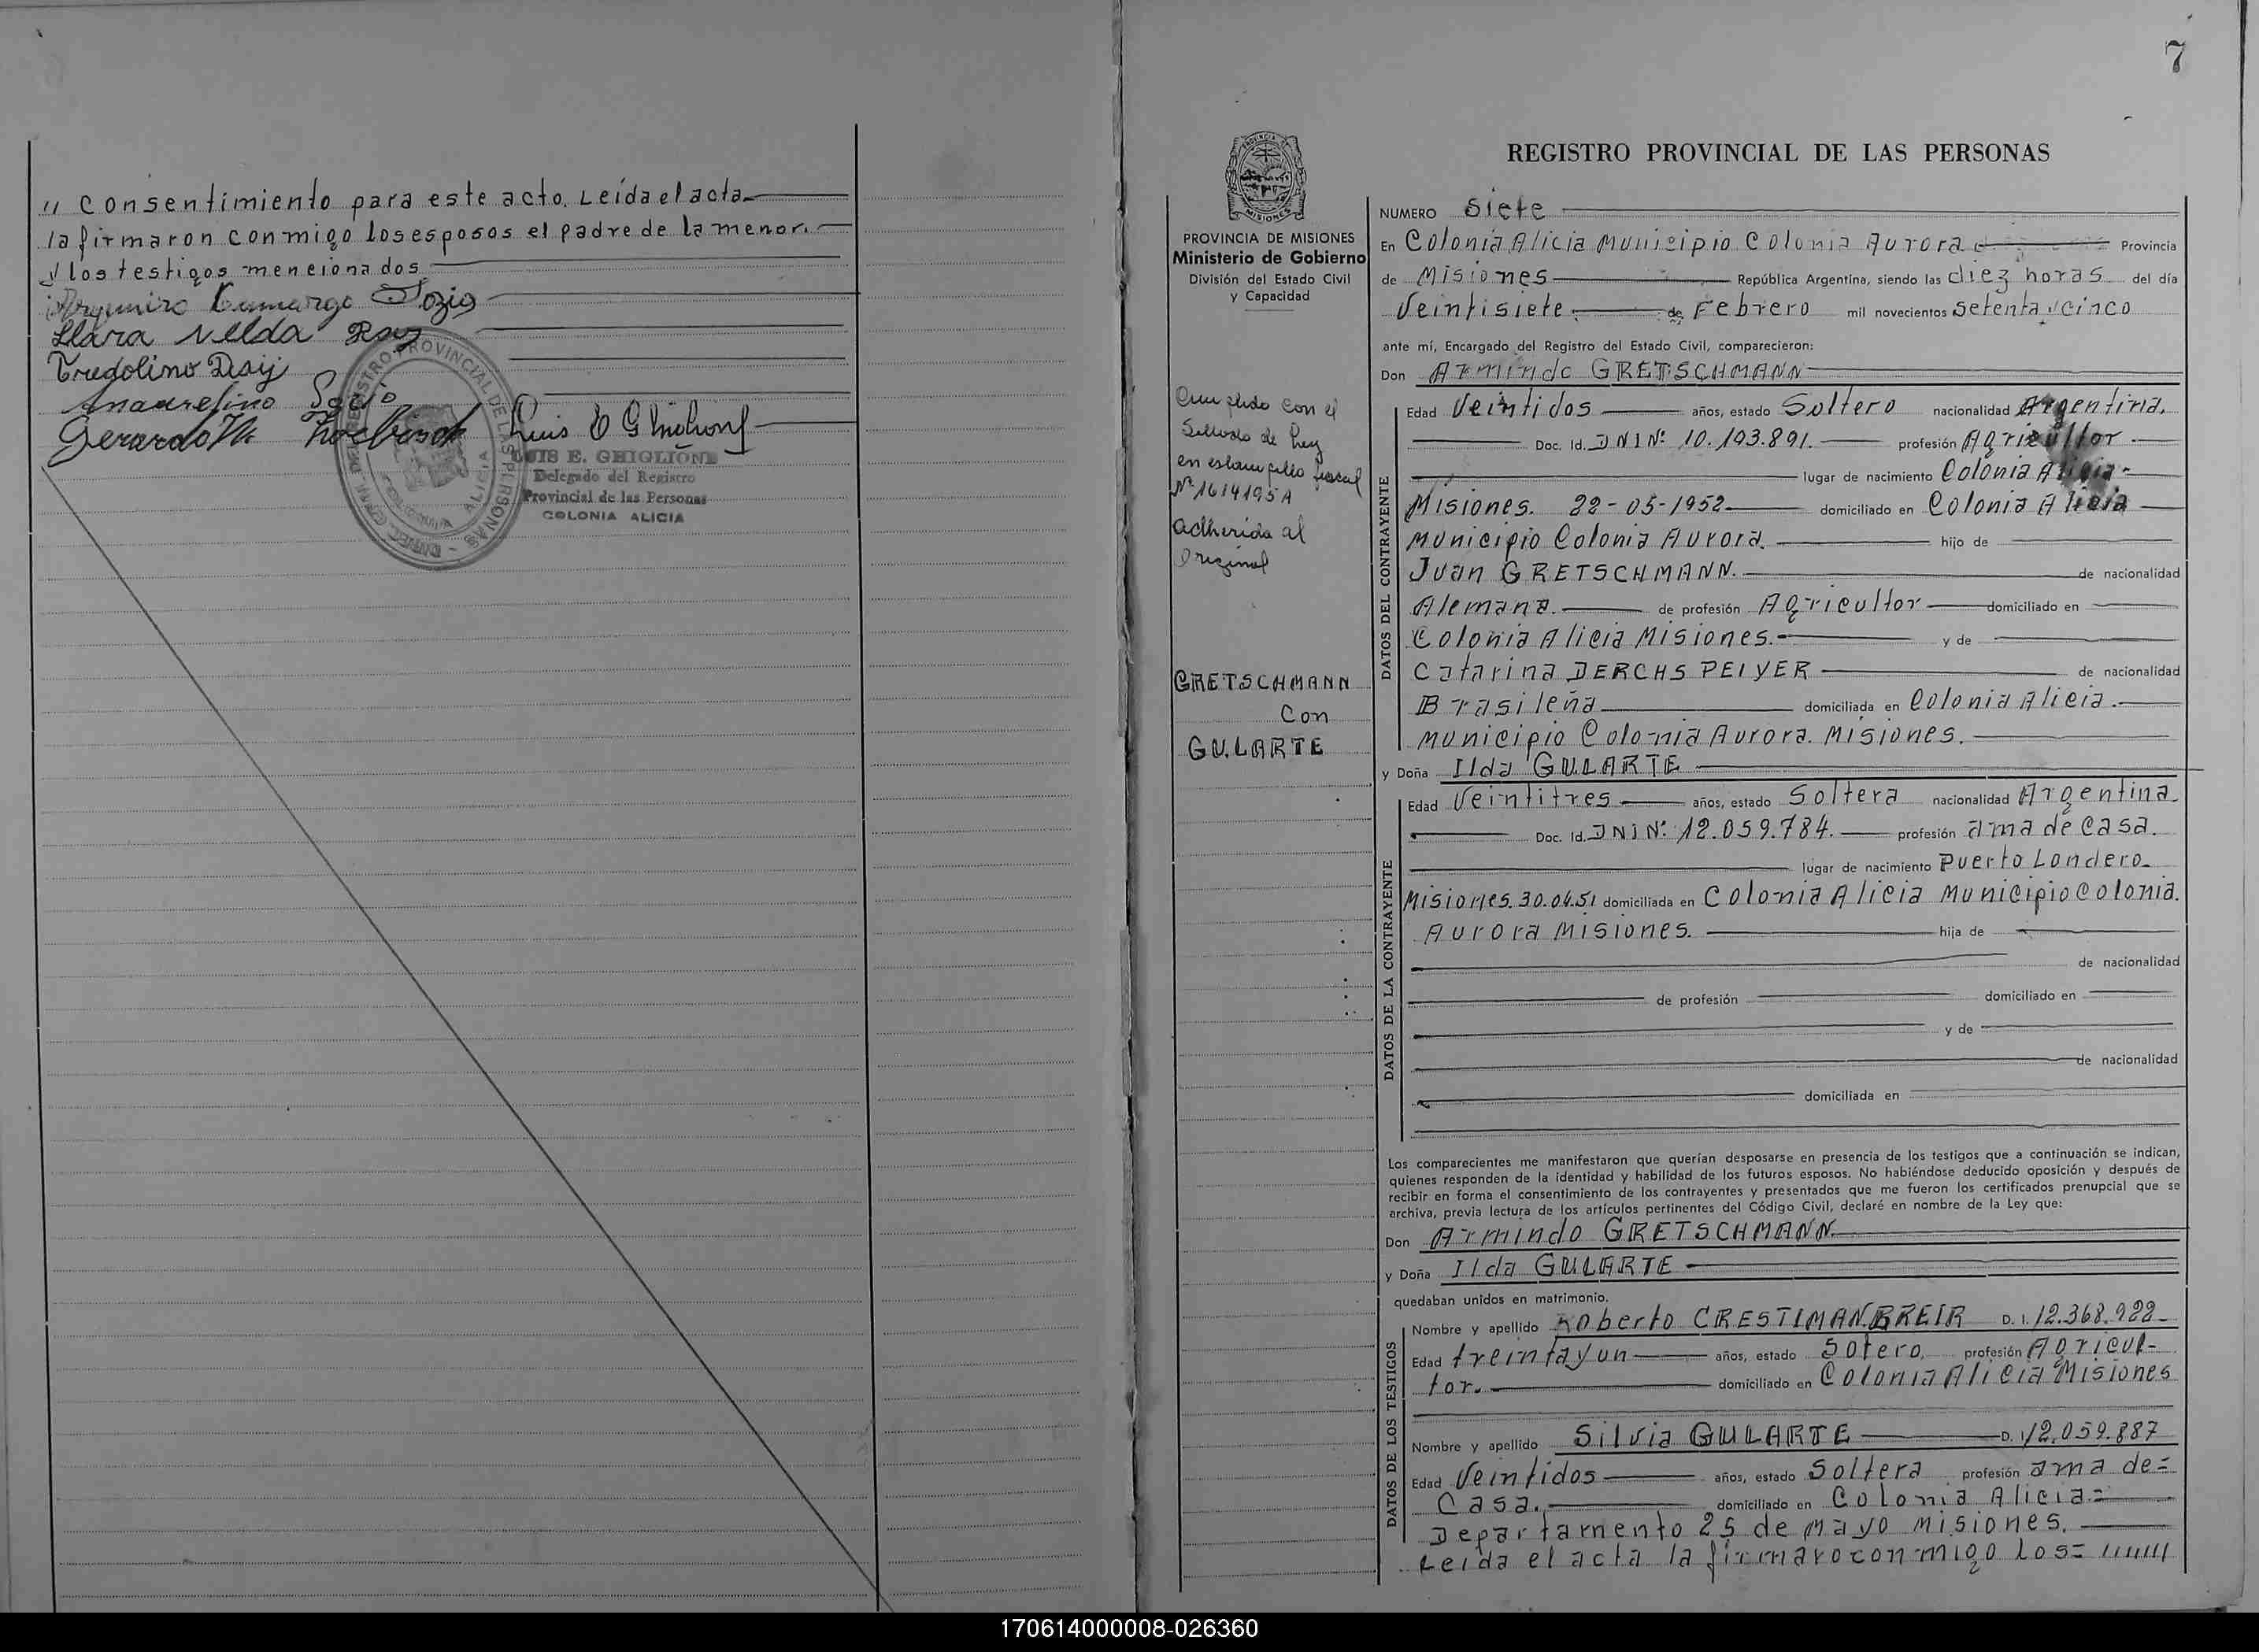 " Consentimiento para este acto. Leída el acta
la firmaron conmigo los esposos el padre de la menor.
y los testigos mencionados
Argemiro Camargo
Clara Nelda
Anaurelino
Gerardo
Luis E Ghiglione
LUIS E. GHIGLIONE
Delegado del Registro
Provincial de las Personas
COLONIA ALICIA
REGISTRO PROVINCIAL DE LAS PERSONAS
COLONIA ALICIA
7
PROVINCIA DE MISIONES
Ministerio de Gobierno
División del Estado Civil
y Capacidad
Cumplido con el
Sellado de Ley
en estampilla fiscal
Nº 1614195A
adherida al
Original
GRETSCHMANN
Con
GULARTE
REGISTRO PROVINCIAL DE LAS PERSONAS
NUMERO Siete
En Colonia Alicia Municipio Colonia Aurora Provincia
de Misiones República Argentina, siendo las diez horas del día
Veintisiete de Febrero mil novecientos Setenta y cinco
ante mí, Encargado del Registro del Estado Civil, comparecieron:
Don Armindo GRETSCHMANN
DATOS DEL CONTRAYENTE
Edad Veintidos años, estado Soltero nacionalidad Argentina.
Doc. Id. DNI Nº 10.193.891. profesión Agricultor
lugar de nacimiento Colonia Alicia-
Misiones. 22-05-1952 domiciliado en Colonia Alicia
Municipio Colonia Aurora. hijo de
Juan GRETSCHMANN. de nacionalidad
Alemana. de profesión Agricultor domiciliado en
Colonia Alicia Misiones.- y de
Catarina DERCHS PEIYER de nacionalidad
Brasileña domiciliada en Colonia Alicia.
Municipio Colonia Aurora. Misiones.
y Doña Ilda GULARTE
DATOS DE LA CONTRAYENTE
Edad Veintitres años, estado Soltera nacionalidad Argentina.
Doc. Id. DNI Nº 12.059.784. profesión ama de Casa.
lugar de nacimiento Puerto Londero.
Misiones. 30.04.51 domiciliada en Colonia Alicia Municipio Colonia.
Aurora Misiones. hija de
de nacionalidad
de profesión domiciliado en
y de
de nacionalidad
domiciliada en
Los comparecientes me manifestaron que querían desposarse en presencia de los testigos que a continuación se indican,
quienes responden de la identidad y habilidad de los futuros esposos. No habiéndose deducido oposición y después de
recibir en forma el consentimiento de los contrayentes y presentados que me fueron los certificados prenupcial que se
archiva, previa lectura de los artículos pertinentes del Código Civil, declaré en nombre de la Ley que:
Don Armindo GRETSCHMANN
y Doña Ilda GULARTE
quedaban unidos en matrimonio.
DATOS DE LOS TESTIGOS
Nombre y apellido Roberto CRESTIMAN.BREIR D. I. 12.368.922-
Edad treintayun años, estado Sotero. profesión Agricul-
tor. domiciliado en Colonia Alicia Misiones
Nombre y apellido Silvia GULARTE D. I 12.059.887
Edad Veintidos años, estado Soltera profesión ama de=
Casa. domiciliado en Colonia Alicia=
Departamento 25 de Mayo Misiones.
Leida el acta la firmaro conmigo los= """
170614000008-026360